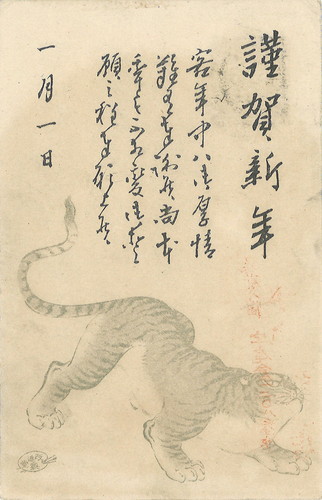 謹賀新年
客年中ハ御厚情
難有奉謝候尚本
年も不相変御愛
顧之程奉願上候
一月一日